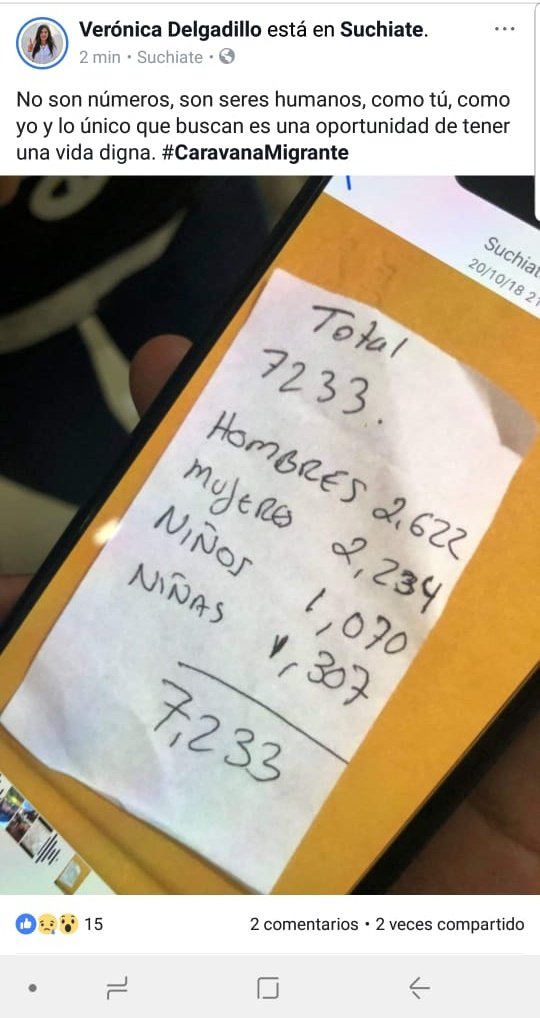 Verónica Delgadillo está en Suchiate.
2 min · Suchiate ·
No son números, son seres humanos, como tú, como
yo y lo único que buscan es una oportunidad de tener
una vida digna. #CaravanaMigrante
Suchiat
20/10/18 21
Total
7233.
HOMBRES 2,622
MUJERES 2,234
NIÑOS 1,070
NIÑAS 1,307
7,233
15
2 comentarios • 2 veces compartido